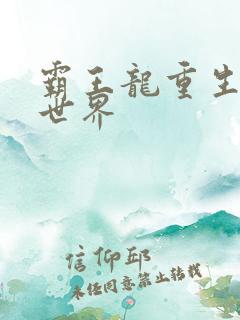 霸王龍重生
世界
信仰邱
未经同意禁止转载